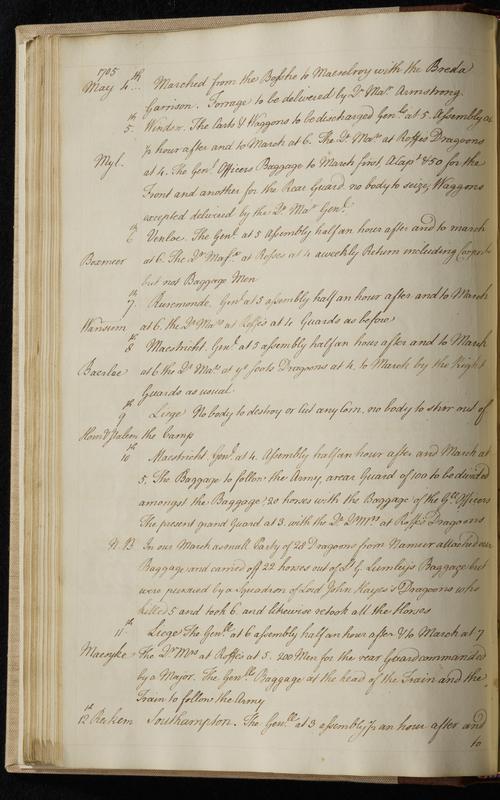 1705
May 4th Marched from the Bosshe to Maeselroy with the Breda
Garrison. Forrage to be delivered by Dr Mar. Armstrong.
5th Windsor. The Carts & Waggons to be discharged Genle at 5. Assembly at
½ hour after and to March at 6. The Dr Mars. at Rosses Dragoons
Myl. at 4. The Genl Officers Baggage to March first, A Capt & 50 for the
Front and another for the Rear Guard. no body to seize Waggons
excepted delivered by the Dr Mar Genl.
6th Venloe. The Genl. at 5 Assembly half an hour after and to march
Boxmeer at 6. The Dr Mars at Rosses at 4 a weekly Return including Corporls
but not Baggage Men
7th Ruremonde. Genl at 5 assembly half an hour after and to March
Wansum at 6. the Dr Mars at Rosses at 4 Guards as before
8th Maestricht. Genl. at 5 assembly half an hour after and to March
Baerloe at 6 the Dr Mars. at ye Scots Dragoons at 4. to March by the Right
Guards as usual.
9th Liege No body to destroy or Cut any Corn, no body to stir out of
Horn & Halem the Camp
10th Maestricht. Genl. at 4. Assembly half an hour after and March at
5. The Baggage to follow the Army, a rear Guard of 100 to be divided
amongst the Baggage, 20 horses with the Baggage of the Gll Officers
The present grand Guard at 3. with the Dr Mrs at Rosses Dragoons
N. B. In our March a small Party of 28 Dragoons from Namur attacked our
Baggage and carried off 22 horses out of L. G. Lumley's Baggage but
were pursued by a Squadron of Lord John Hayes's Dragoons who
killed 5 and took 6 and likewise retook all the Horses
11th Liege The Genll at 6 assembly half an hour after & to March at 7
Maesyke The Dr Mrs at Rosses at 5. 200 Men for the rear Guard commanded
by a Major. The Genlls Baggage at the head of the Train and the
Train to follow the Army
12th Reckem Southampton. The Genll at 3 assembly ½ an hour after and
to